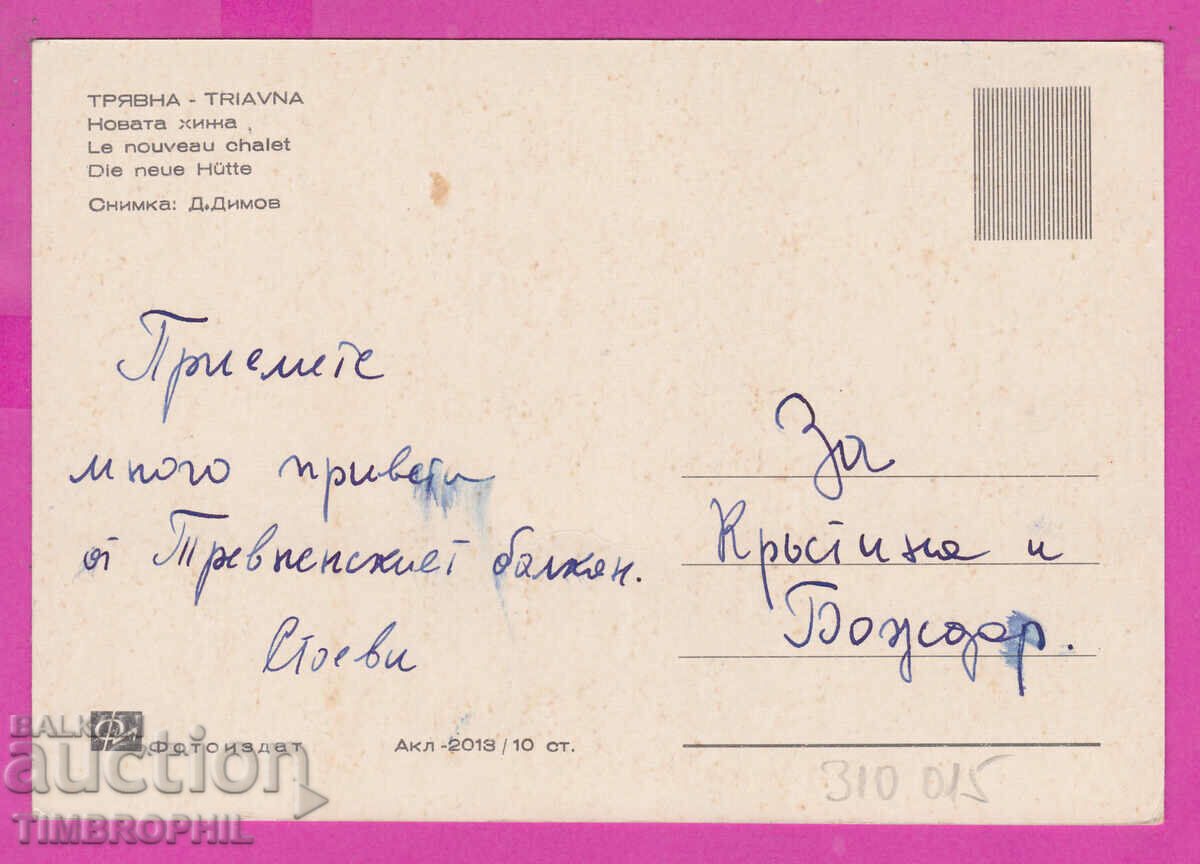 ТРЯВНА - TRIAVNA
Новата хижа
Le nouveau chalet
Die neue Hütte
Снимка: Д.Димов
Приемете
много привети
от Тревненският балкан.
Стоеви
За
Кръстина и
Божидар.
Фотоиздат
Акл-2013/10 ст.
310 015
BALKAN
auction
TIMBROPHIL